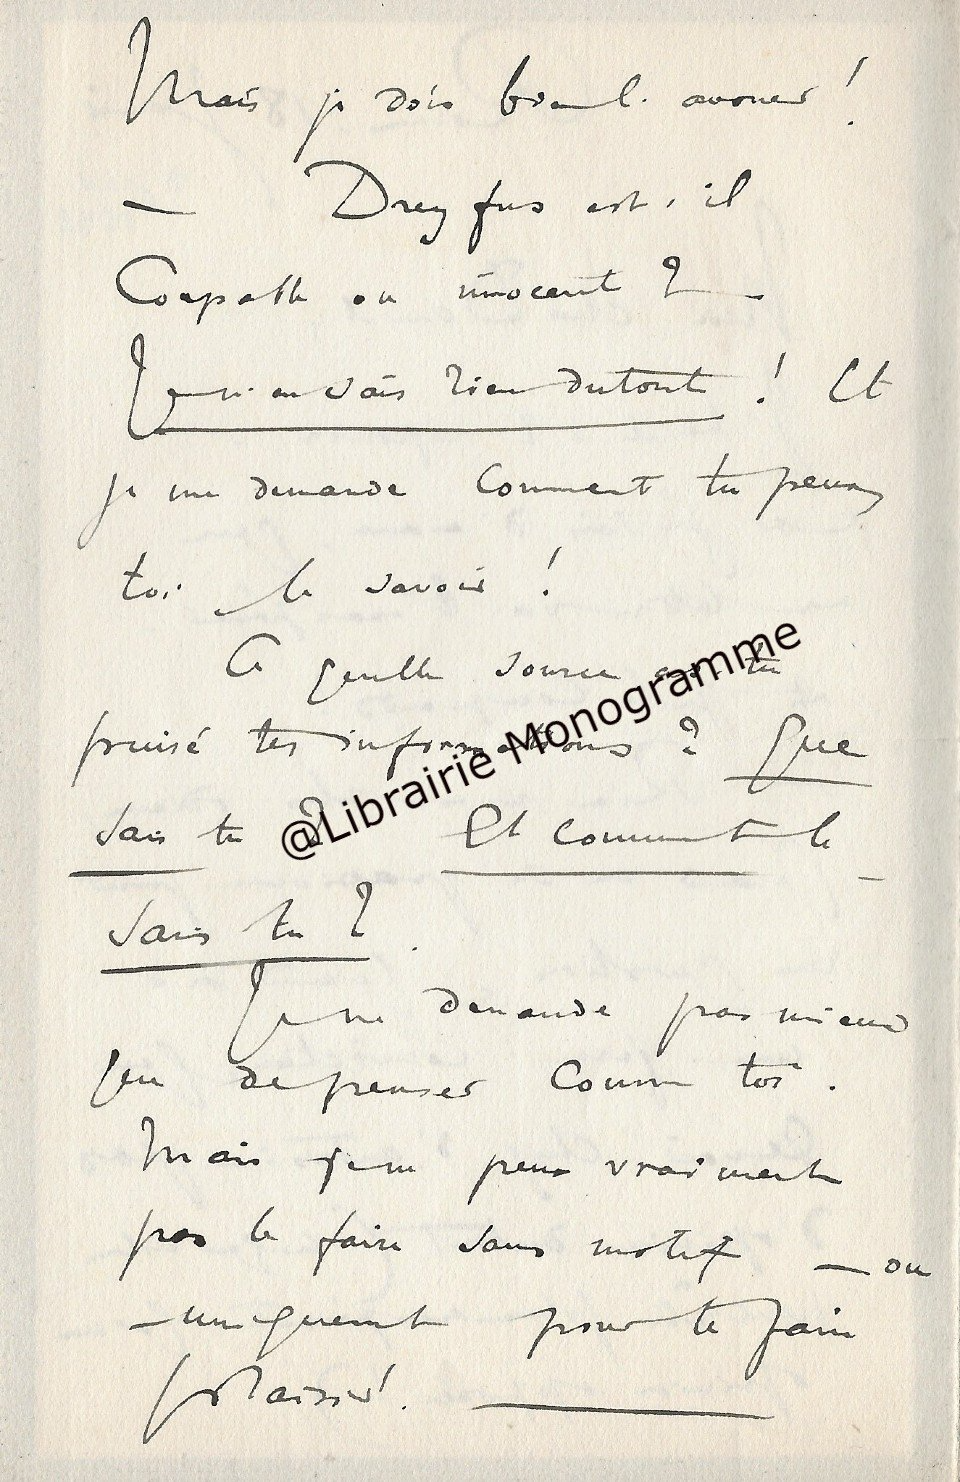 Mais je dois avouer !
— Dreyfus est-il
Coupable ou innocent ? —
Je n'en sais rien du tout ! Et
je me demande comment tu peux,
toi, le savoir !
A quelle source as tu
puisé tes informations ? Que
sais tu ? Et comment le
sais tu ?
Je ne demande pas mieux
que de penser comme toi.
Mais je ne peux vraiment
pas le faire sans motif — ou
— uniquement pour te faire
plaisir !
@Librairie Monogramme